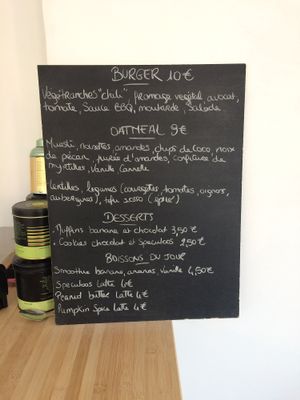 BURGER 10€
Végétranches "chili", fromage végétal, avocat,
tomate, sauce BBQ, moutarde, salade
OATMEAL 9€
Muesli, noisettes, amandes, chips de coco, noix
de pécan, purée d'amandes, confiture de
myrtilles, Vanille Cannelle
Lentilles, légumes (courgettes, tomates, oignons,
aubergines), tofu sesso (épicé)
DESSERTS
. Muffins banane et chocolat 3,50€
. Cookies chocolat et speculoos 2,50€
BOISSONS DU JOUR
Smoothie banane, ananas, Vanille 4,50€
Speculoos Latte 4€
Peanut butter Latte 4€
Pumpkin Spice Latte 4€